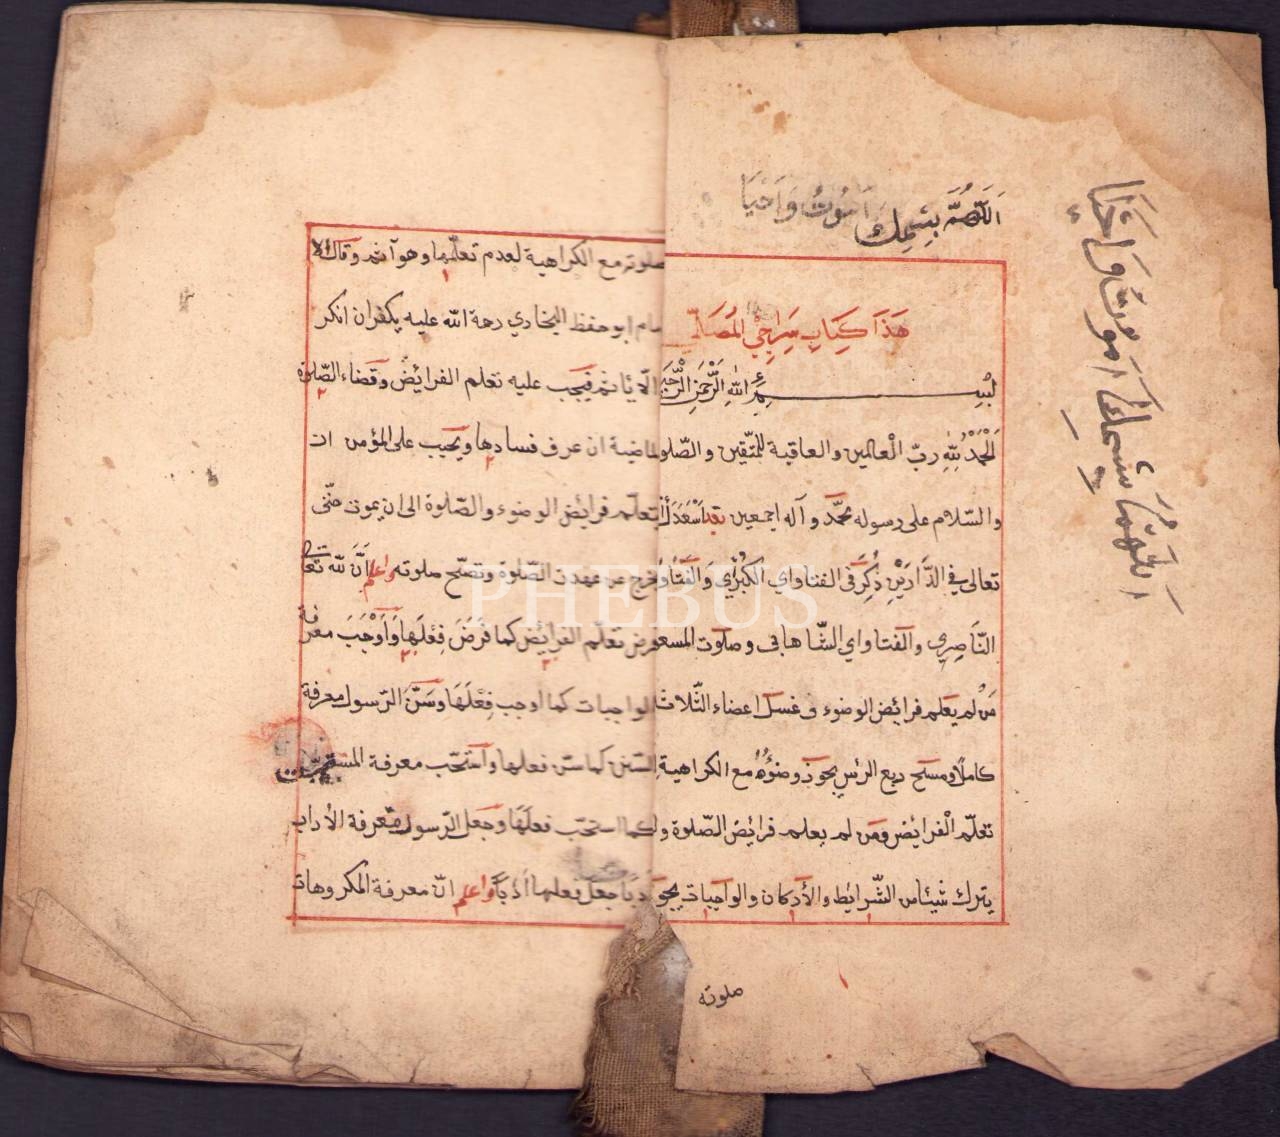 اَللّٰهُمَّ بِسْمِكَ اَمُوتُ وَاَحْيَا
هَذَا كِتَابِ سِرَاجِي المُصَلّي
بْسِمِ اللهِ الرَّحْمٰنِ الرَّحِيمِ
اَلْحَمْدُ لِلّٰهِ رَبّ الْعالمين والعاقبة للمتّقين والصّلو
والسّلام على رسوله محمّد وآله اجمعين بعد اَسْعَدَكَ
تعالى في الدَّارَيْنِ ذُكِرَ فى الفتاواي الكُبْرٰي وَالفَتَاو
النَّاصِرِي والفتاواي الشّاهانى وصلوت المسعو
مَنْ لم يعلم فرائض الوضوء فغسل اعضاء الثّلاث
كاملًا ومسح ربع الرئس يجوز وضوُءُهُ مع الكراهية
تعلّم الْفرائض ومن لم يعلم فرائض الصّلوة و
يترك شيئا من الشّرائط والأركان والواجبات يجو
صلوته
صلوته مع الكراهية لعدم تعلّمها وهو آثم وقال الا
مام ابو حفظ البخاري رحمة الله عليه يكفر ان انكر
والّا ياثم فيجب عليه تعلم الفرائض وقضاء الصّلوة
الماضية ان عرف فسادها ويجب على المؤمن ان
يتعلّم فرائض الوضوء والصّلوة الى ان يموت حتّى
يخرج عن عهدت الصّلوة وتصحّ صلوته واعلم اَنَّ للّه تعالى
فرض تعلّم الفرائض كما فَرَضَ فِعْلَهَا وَاَوْجَبَ معرفة
الواجبات كما اوجب فِعْلَهَا وسَنَّ الرّسول معرفة
السّنن كما سنّ فعلها واستحّب معرفة المستحب
كما استحّب فعلَهَا وجعل الرّسول معرفة الأداب
جعل فعلها اَدَبًا واعلم انّ معرفة المكروهات
اللّهمّ بسمك اموت واحيا
PHEBUS